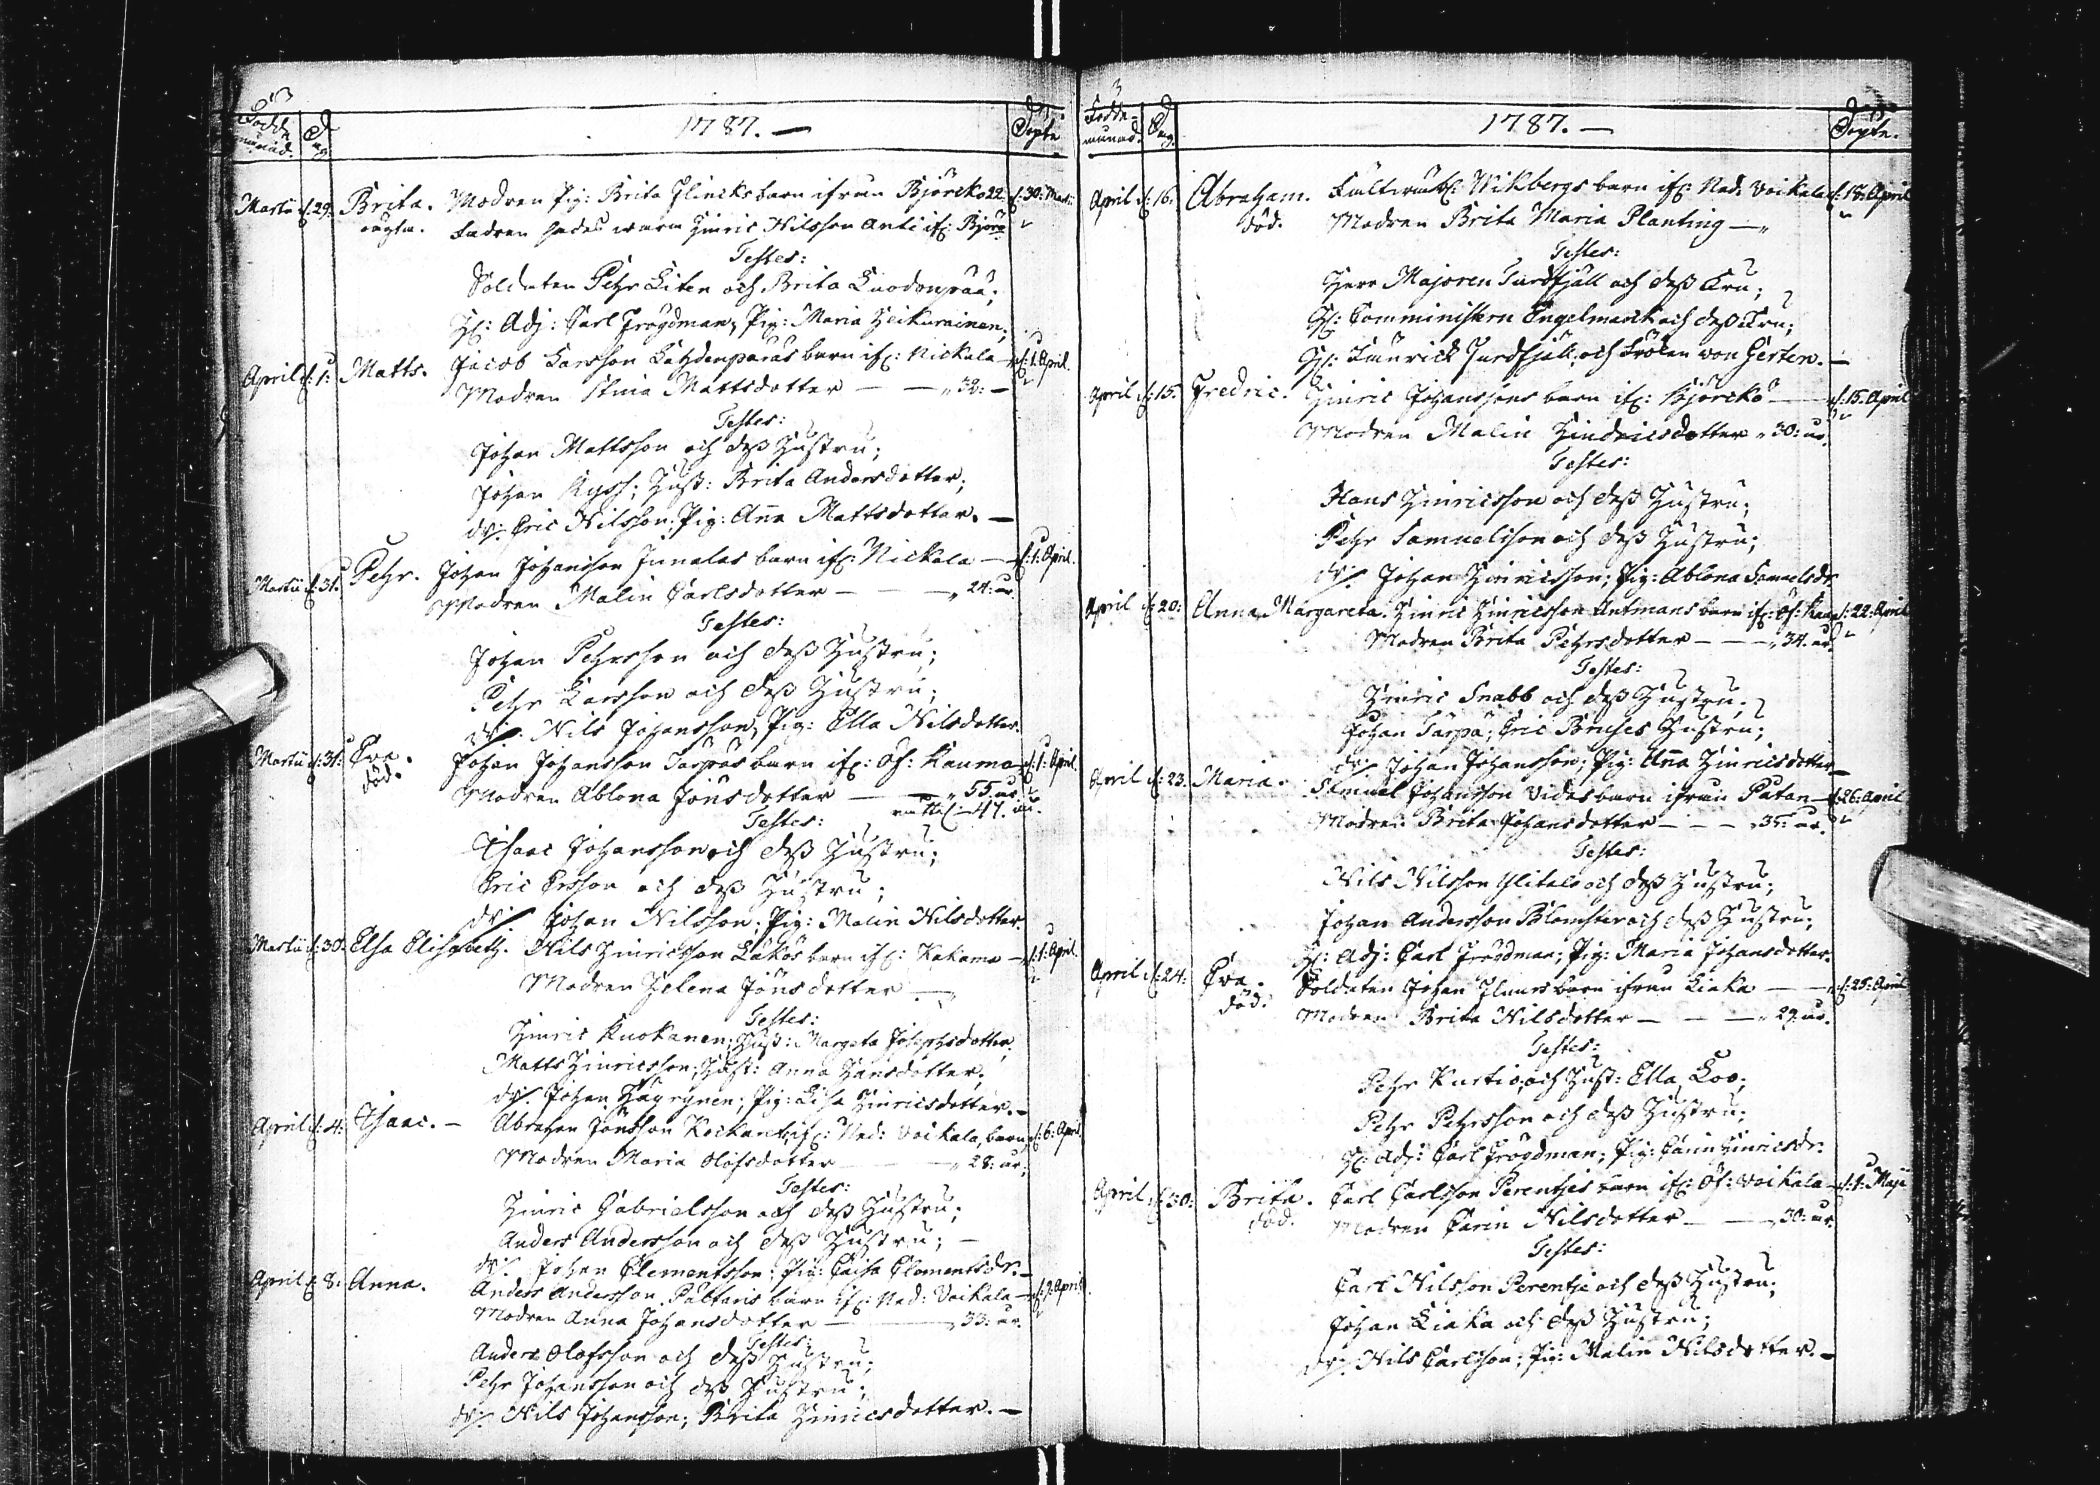 Födde månad. Dag 1787. — Döpte
Martii d. 29. Brita. Modren Pig: Brita Flincks barn ifrån Björckö 22. d. 30: Martii
oägta. Fadren sades wara Hinric Nilsson Anti ifr: Björcö
Testes:
Soldaten Pehr Liten och Brita Luodonpää;
Hr: Adj: Carl Frögdman, Pig: Maria Heikurainen;
April d. 1: Matts. Jacob Larsson barn ifr: Nickala — d. 1. April.
Modren Stina Mattsdotter — — 38: —
Testes:
Johan Mattsson och dess Hustru;
Johan Ryss; Hust: Brita Andersdotter;
dr: Eric Nilsson; Pig: Anna Mattsdotter. —
Martii d. 31. Pehr. Johan Johansson Junalas barn ifr: Nickala — d. 1. April.
Modren Malin Carlsdotter — — 24: år
Testes:
Johan Pehrsson och dess Hustru;
Pehr Larsson och dess Hustru;
dr: Nils Johansson, Pig: Ella Nilsdotter.
Martii d. 31: Eva. Johan Johansson barn ifr: Öf: Kauma d. 1. April.
död. Modren Ablona Jönsdotter — 55. år
47. år.
Testes:
Isaac Johansson och dess Hustru;
Eric Ersson och dess Hustru;
dr: Johan Nilsson; Pig: Malin Nilsdotter.
Martii d. 30. Elsa Elisabeth. Nils Hinricsson Lakos barn ifr: Kakama — d. 1. April.
Modren Helena Jönsdotter —
Testes:
Hinric Kuokanen; Hust: Margeta Josephsdotter;
Matts Hinricsson; Hust: Anna Hansdotter;
dr: Johan Häyrynen; Pig: Lisa Hinricsdotter. —
April d. 4: Isaac. — Abraham Jönsson ifr: Ned: Voikala, barn d. 6. April.
Modren Maria Olofsdotter — 28: år;
Testes:
Hinric Gabrielsson och dess Hustru;
Anders Andersson och dess Hustru; —
dr: Johan Clementsson; Pig: Caisa Clementsdr. —
April d. 8: Anna. Anders Andersson Paltaris barn ifr: Ned: Voikala — d. 9. April
Modren Anna Johansdotter — 33: år.
Testes:
Anders Olofsson och dess Hustru;
Pehr Johansson och dess Hustru;
dr: Nils Johansson; Brita Hinricsdotter. —
Födde månad. Dag. 1787. — Döpte.
April d. 16. Abraham. Fältwäb: Wikbergs barn ifr: Ned: Voikala d. 18. April
död. Modren Brita Maria Planting —
Testes:
Herr Majoren Turdfjäll och dess Fru;
Hr: Comministern Engelmarck och dess Fru;
Hr: Fänrick Turdfjäll, och Frölen von Gerten. —
April d. 15. Fredric. Hinric Johanssons barn ifr: Björckö — d. 15. April
Modren Malin Hindricsdotter 30: år.
Testes:
Hans Hinricsson och dess Hustru;
Pehr Samuelsson och dess Hustru;
dr: Johan Hinricsson; Pig: Ablona Samuelsdr
April d. 20: Anna Margareta. Hinric Hinricsson Antmans barn ifr: Öf: Kauma d. 22. April
Modren Brita Pehrsdotter — — 34. år.
Testes:
Hinric Snabb och dess Hustru;
Johan Tarpa; Eric Hustru;
dr: Johan Johansson; Pig: Anna Hinricsdotter —
April d. 23. Maria. Samuel Johansson Vidas barn ifrån — d. 26. April
Modren Brita Johansdotter — — 35: år.
Testes:
Nils Nilsson Ylitalo och dess Hustru;
Johan Andersson Blomster och dess Hustru;
Hr: Adj: Carl Frögdman; Pig: Maria Johansdotter.
April d. 24: Eva. Soldaten Johan barn ifrån Liaka — d. 25. April
död. Modren Brita Nilsdotter — — 29. år.
Testes:
Pehr Kurtio, och Hust: Ella Loo;
Pehr Pehrsson och dess Hustru;
Hr: Adj: Carl Frögdman; Pig: Carin Hinricsdr:
April d. 30: Brita. Carl Carlsson Perentjes barn ifr: Öf: Voikala — d. 1. Maji
död. Modren Carin Nilsdotter — — 30: år
Testes:
Carl Nilsson Perentje och dess Hustru;
Johan Liaka och dess Hustru;
dr: Nils Carlsson; Pig: Malin Nilsdotter. —